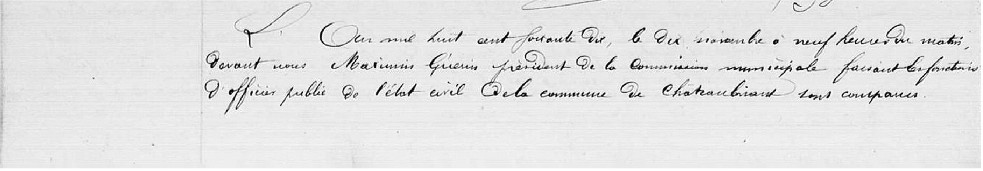 L'an mil huit cent soixante dix, le dix novembre à neuf heures du matin,
devant nous Maximin Guérin président de la Commission municipale faisant les fonctions
d'officier public de l'état civil de la commune de Chateaubriant sont comparus